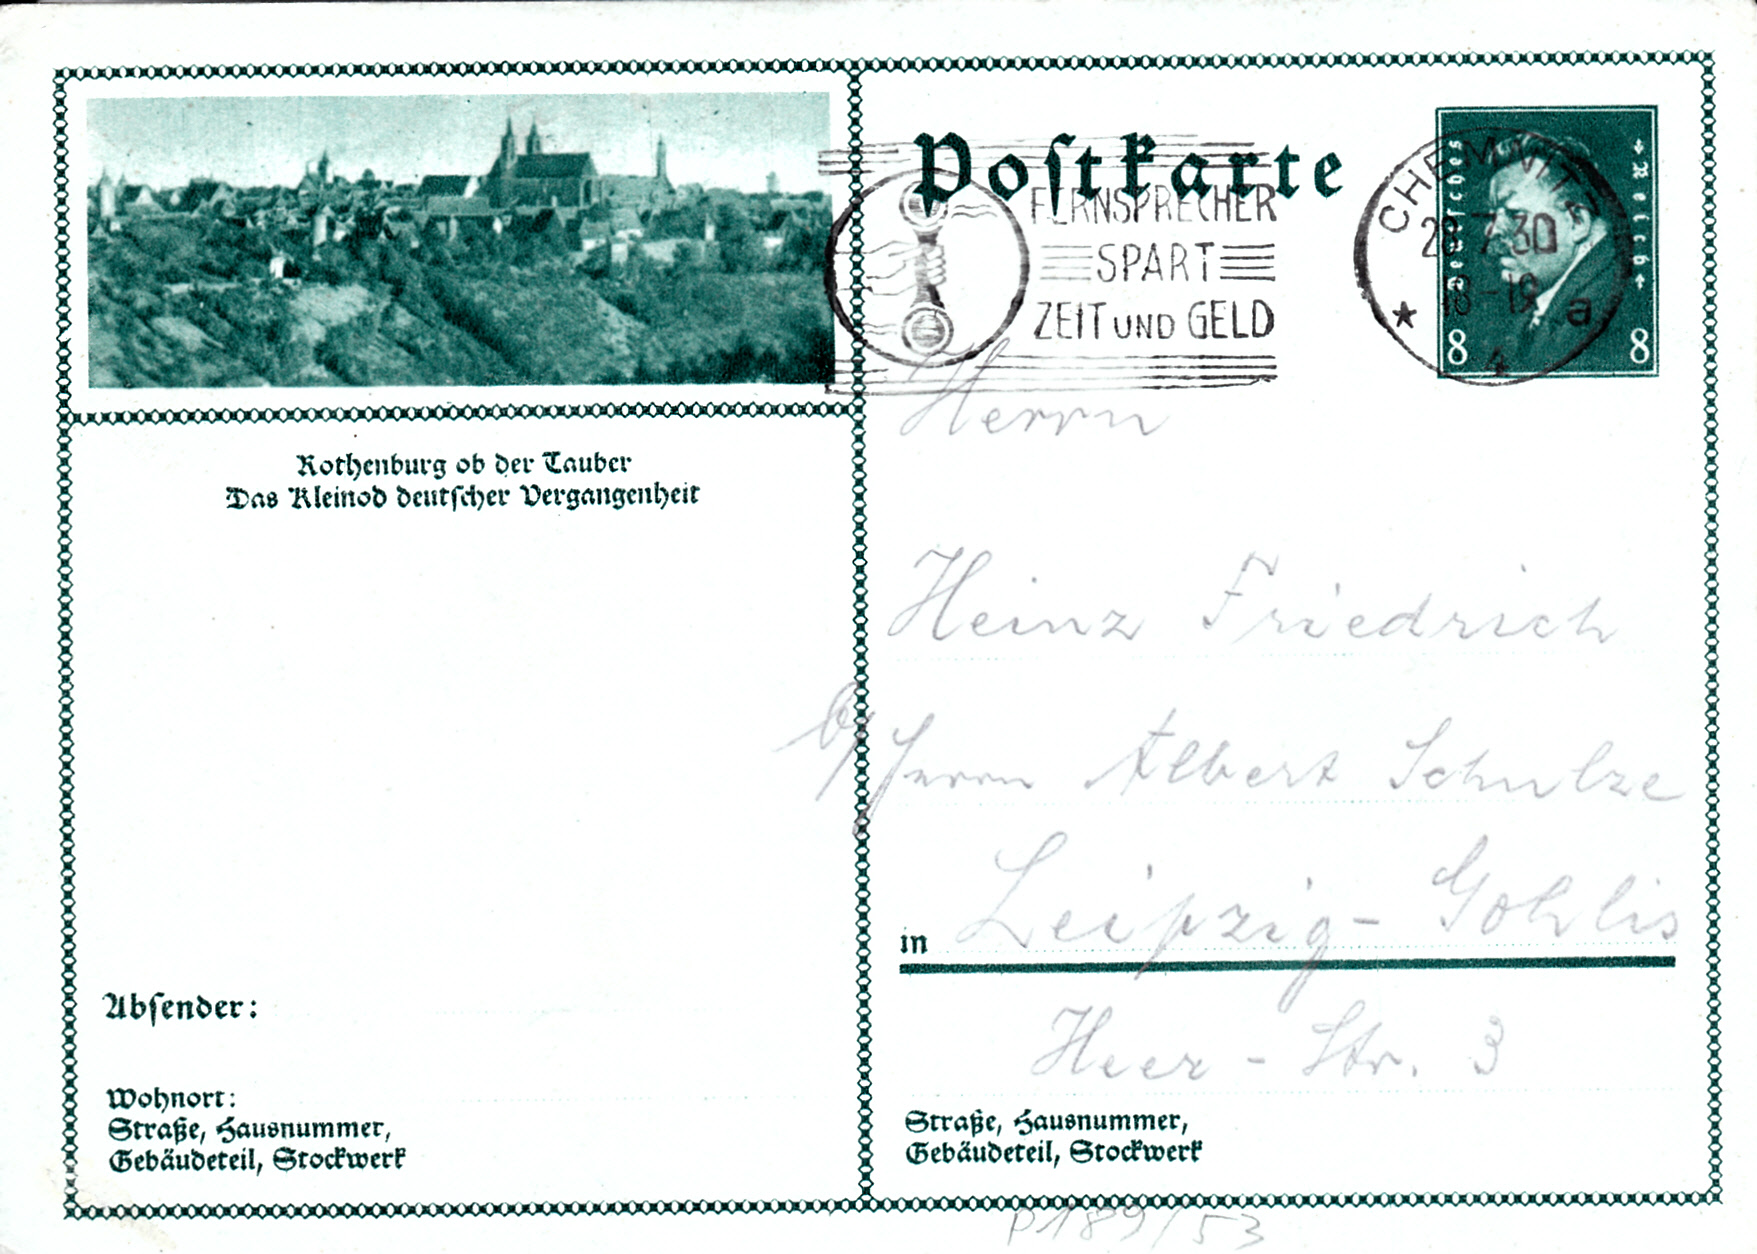 Rothenburg ob der Tauber
Das Kleinod deutscher Vergangenheit
Absender:
Wohnort:
Straße, Hausnummer,
Gebäudeteil, Stockwerk
Postkarte
FERNSPRECHER
SPART
ZEIT UND GELD
CHEMNITZ
28.7.30
18-19
★ a
4
Deutsches
Reich
8 8
Herrn
Heinz Friedrich
b/ Herrn Albert Schulze
in Leipzig-Gohlis
Heer-Str. 3
Straße, Hausnummer,
Gebäudeteil, Stockwerk
P189/53